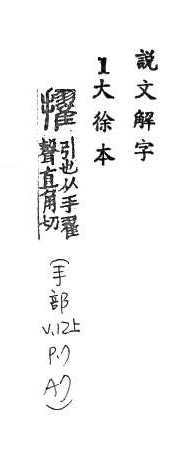 説文解字
1大徐本
擢 引也从手翟
聲直角切
(手部
V.12上
P.7
A7)